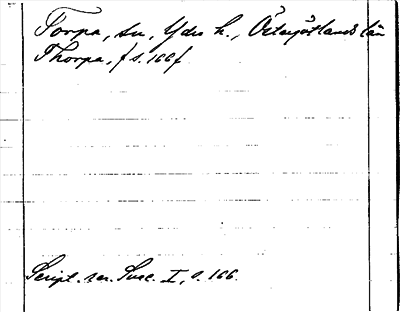 Torpa, sn, Ydre h., Östergötlands län
Thorpa, f s. 166 f
Script. rer. Suec. I, s. 166.